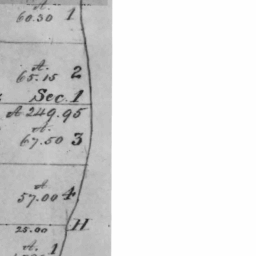 A.
60.50 1
A.
65.15 2
Sec. 1
A 249.95
A.
67.50 3
A
57.00 4
H
25.00
A. 1